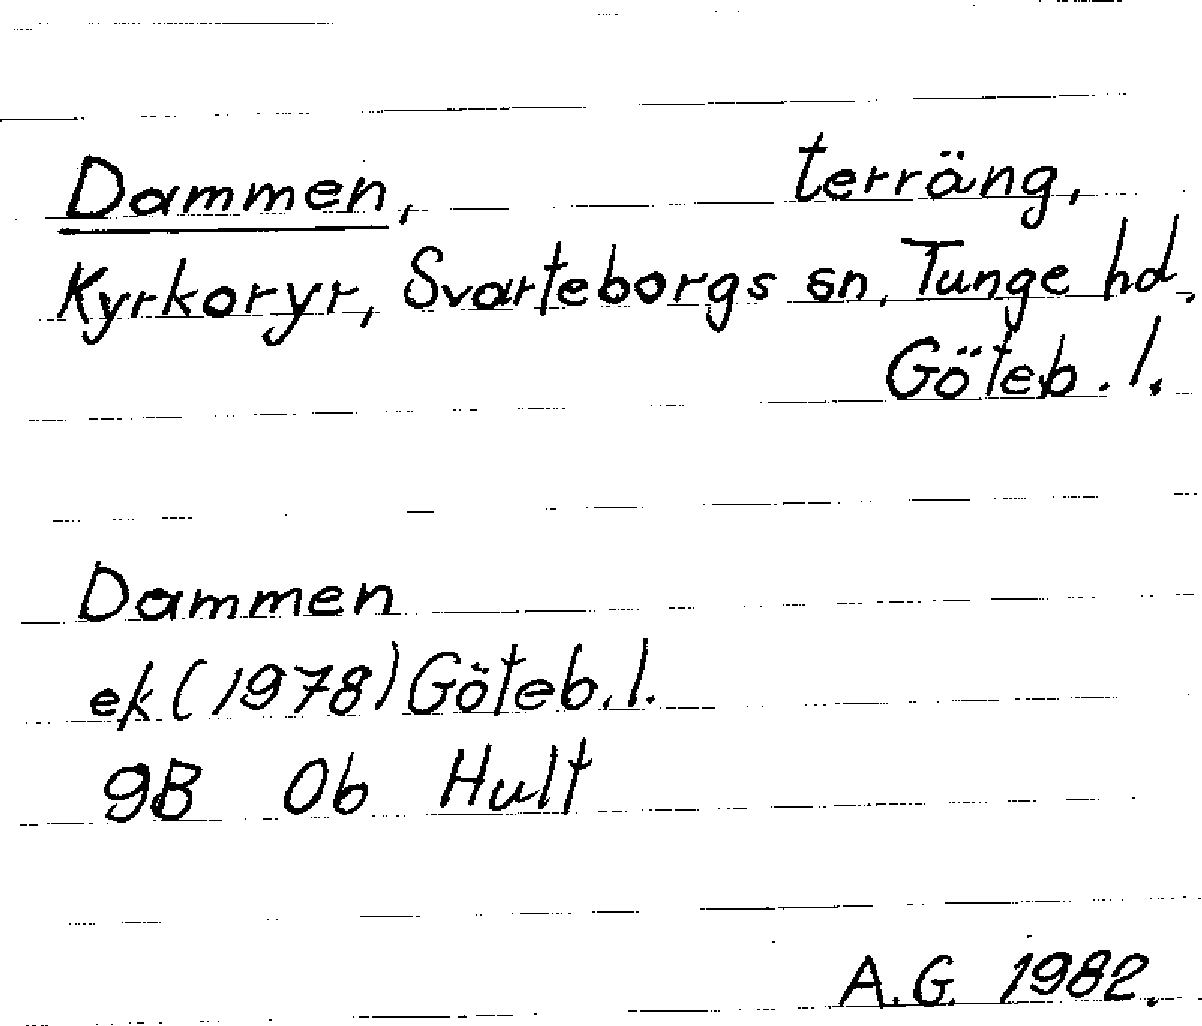 Dammen, terräng,
Kyrkoryr, Svarteborgs sn, Tunge hd,
Göteb. l.
Dammen
ek (1978) Göteb. l.
9B 0b Hult
A.G. 1982.